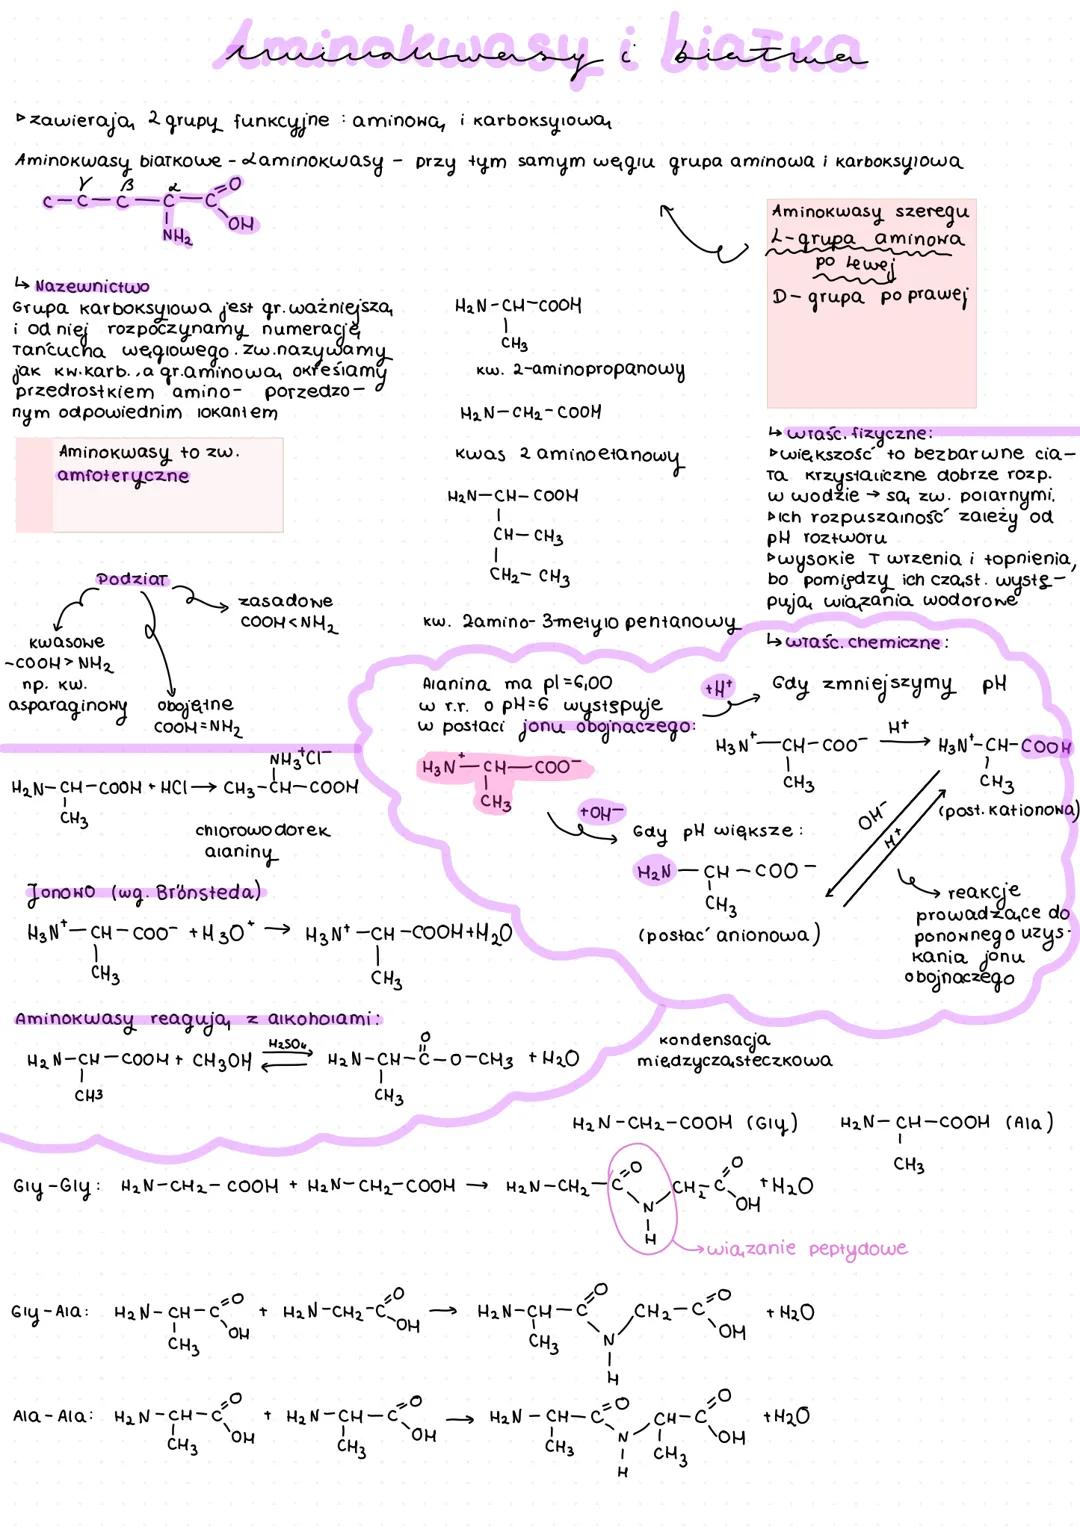 Aminokwasy i białka
▹ zawierają 2 grupy funkcyjne : aminową i karboksylową
Aminokwasy białkowe - αaminokwasy - przy tym samym węglu grupa aminowa i karboksylowa
γ β α O
C-C-C-C-C
OH
NH₂
Aminokwasy szeregu
L-grupa aminowa
po lewej
D- grupa po prawej
↳ Nazewnictwo
Grupa karboksylowa jest gr. ważniejszą
i od niej rozpoczynamy numerację
łańcucha węglowego. zw. nazywamy
jak kw. karb., a gr. aminową określamy
przedrostkiem amino- porzedzo-
nym odpowiednim lokantem
Aminokwasy to zw.
amfoteryczne
H₂N-CH-COOH
CH₃
kw. 2-aminopropanowy
H₂N-CH₂-COOH
kwas 2 aminoetanowy
H₂N-CH-COOH
CH-CH₃
CH₂-CH₃
kw. 2amino-3-metylo pentanowy
↳ właśc. fizyczne:
▹ większość to bezbarwne cia-
ła krystaliczne dobrze rozp.
w wodzie → są zw. polarnymi.
▹ich rozpuszalność zależy od
pH roztworu
▹wysokie T wrzenia i topnienia,
bo pomiędzy ich cząst. wystę-
pują wiązania wodorowe
Podział
zasadowe
COOH<NH₂
kwasowe
-COOH>NH₂
np. kw.
asparaginowy
obojętne
COOH=NH₂
↳ właśc. chemiczne:
Alanina ma pI=6,00
w r.r. o pH=6 występuje
w postaci jonu obojnaczego:
H₃N⁺-CH-COO⁻
CH₃
+H⁺
Gdy zmniejszymy pH
H₃N⁺-CH-COO⁻ H⁺→ H₃N⁺-CH-COOH
CH₃ CH₃
(post. kationowa)
+OH⁻
Gdy pH większe:
H₂N-CH-COO⁻
CH₃
(postać anionowa)
OH⁻
H⁺
reakcje
prowadzące do
ponownego uzys-
kania jonu
obojnaczego
NH₃⁺Cl⁻
H₂N-CH-COOH + HCl → CH₃-CH-COOH
CH₃
chlorowodorek
alaniny
Jonowo (wg. Brönsteda)
H₃N⁺-CH-COO⁻ + H₃O⁺ → H₃N⁺-CH-COOH+H₂O
CH₃ CH₃
Aminokwasy reagują z alkoholami:
H₂SO₄ O
H₂N-CH-COOH + CH₃OH ⇌ H₂N-CH-C-O-CH₃ + H₂O
CH₃ CH₃
kondensacja
międzycząsteczkowa
H₂N-CH₂-COOH (Gly) H₂N-CH-COOH (Ala)
CH₃
Gly-Gly: H₂N-CH₂-COOH + H₂N-CH₂-COOH → H₂N-CH₂-C=O N CH₂-C=O + H₂O
H OH
wiązanie peptydowe
Gly-Ala: H₂N-CH-C=O + H₂N-CH₂-C=O → H₂N-CH-C=O CH₂-C=O + H₂O
CH₃ OH OH CH₃ N OH
H
Ala-Ala: H₂N-CH-C=O + H₂N-CH-C=O → H₂N-CH-C=O CH-C=O + H₂O
CH₃ OH CH₃ OH CH₃ N CH₃ OH
H